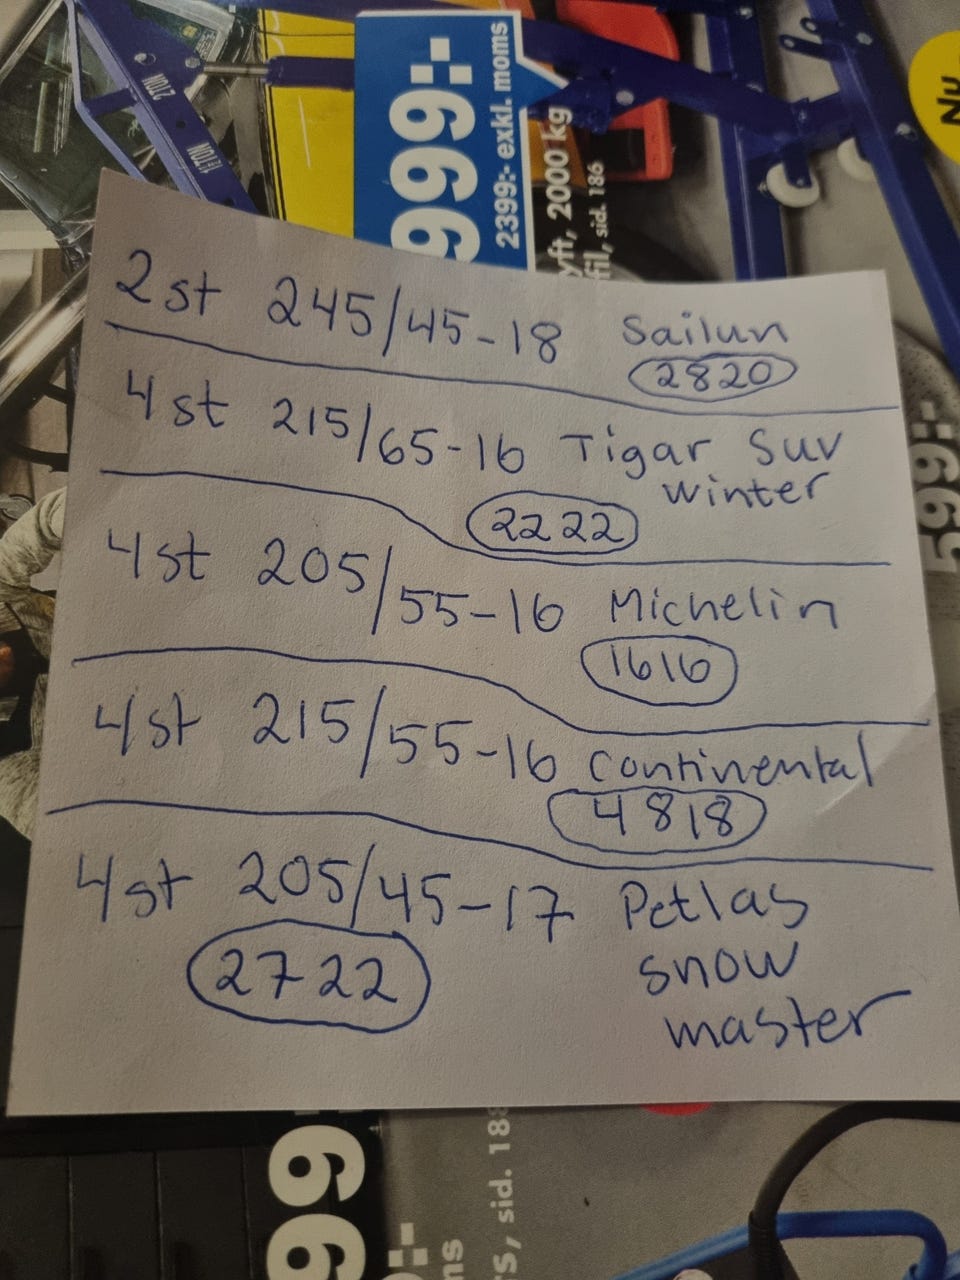 ZION
VETON
999:-
2399:- exkl. moms
yft, 2000 kg
fil, sid. 186
Nu
2st 245/45-18 Sailun
2820
4st 215/65-16 Tigar Suv
winter
2222
599:-
4st 205/55-16 Michelin
1616
4st 215/55-16 Continental
4818
4st 205/45-17 Petlas
2722
snow
master
99
:-
ms
rs, sid. 188